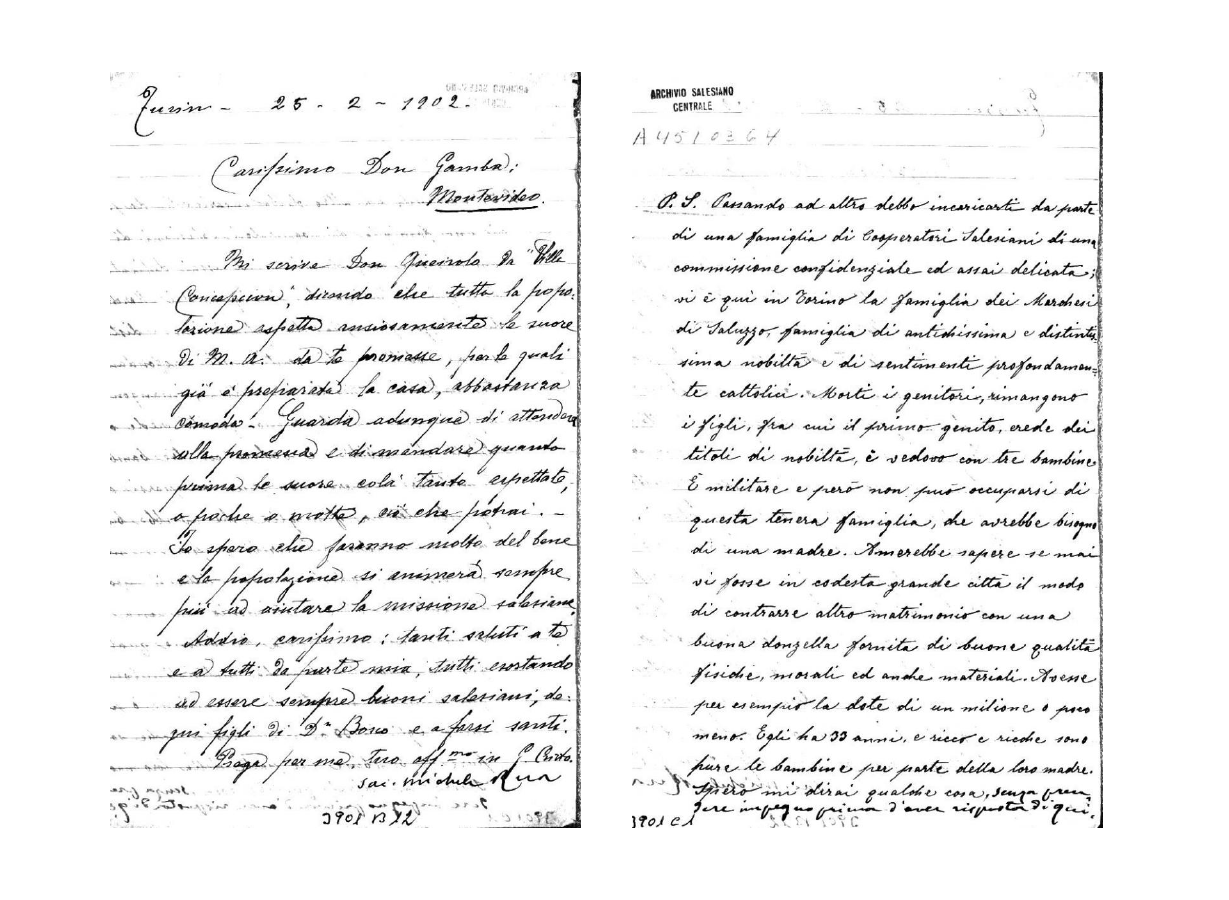 Turin - 25 - 2 - 1902.
Carissimo Don Gamba;
Montevideo.
Mi scrive Don Queirolo da "Ville
Concepcion", dicendo che tutta la popo-
lazione aspetta ansiosamente le suore
di M. A. da te promesse, per le quali
già è preparata la casa, abbastanza
comoda - Guarda adunque di attendere
alla promessa e di mandare quanto
prima le suore colà tanto aspettate,
o poche o molte, ciò che potrai. -
Io spero che faranno molto del bene
e la popolazione si animerà sempre
più ad aiutare la missione salesiana.
Addio, carissimo: tanti saluti a te
e a tutti da parte mia, tutti esortando
ad essere sempre buoni salesiani, de-
gni figli di Dn Bosco e a farsi santi.
Prega per me, tuo affmo in G. Cristo.
Sac. Michele Rua
3901 B 12
ARCHIVIO SALESIANO
CENTRALE
A 4510364
P. S. Passando ad altro debbo incaricarti da parte
di una famiglia di Cooperatori Salesiani di una
commissione confidenziale ed assai delicata;
vi è quì in Torino la famiglia dei Marchesi
di Saluzzo, famiglia di antichissima e distintis-
sima nobiltà e di sentimenti profondamen-
te cattolici. Morti i genitori, rimangono
i figli, fra cui il primo genito, erede dei
titoli di nobiltà, è vedovo con tre bambine
È militare e però non può occuparsi di
questa tenera famiglia, che avrebbe bisogno
di una madre. Amerebbe sapere se mai
vi fosse in codesta grande città il modo
di contrarre altro matrimonio con una
buona donzella fornita di buone qualità
fisiche, morali ed anche materiali. Avesse
per esempio la dote di un milione o poco
meno. Egli ha 33 anni, e ricco e ricche sono
pure le bambine per parte della loro madre.
Spero mi dirai qualche cosa, senza pren
dere impegno prima d'aver risposta di qui.
3901 C1